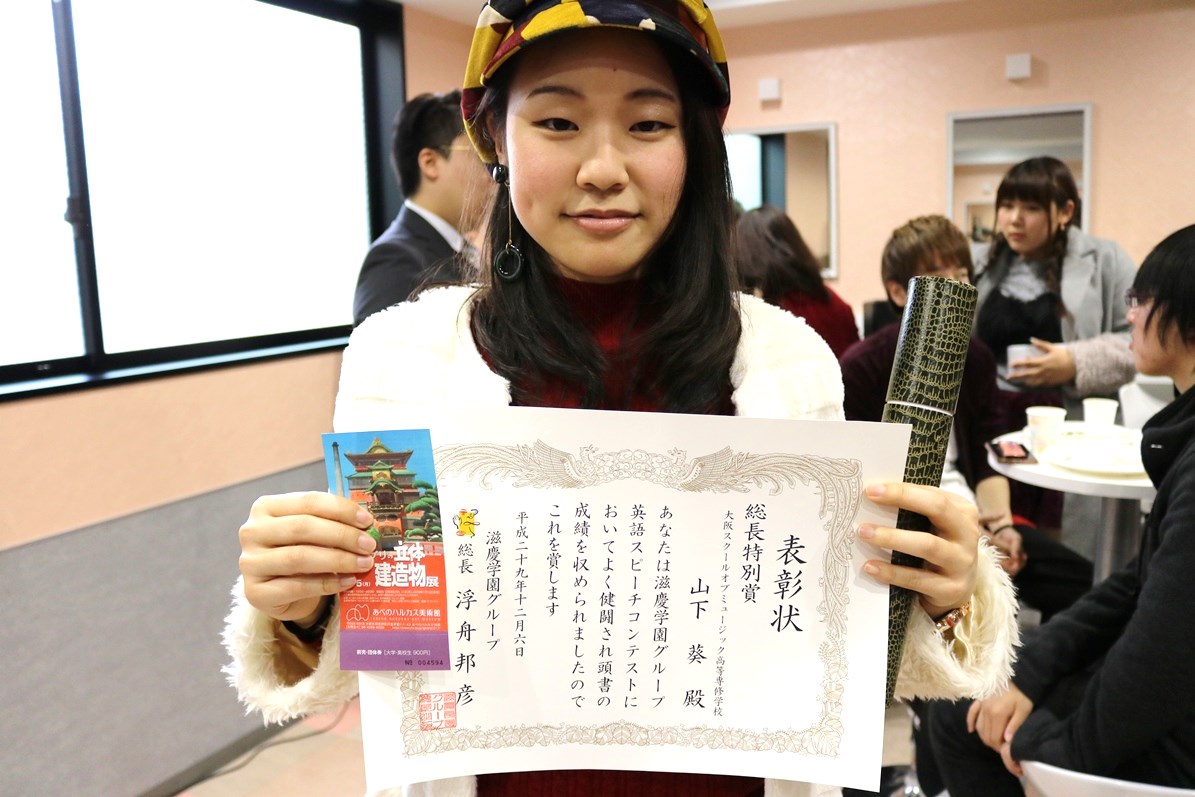 表彰状
総長特別賞
大阪スクールオブミュージック高等専修学校
山下 葵 殿
あなたは滋慶学園グループ
英語スピーチコンテストに
おいてよく健闘され頭書の
成績を収められましたので
これを賞します
平成二十九年十二月六日
滋慶学園グループ
総長 浮舟邦彦
立体
建造物展
5(月)
あべのハルカス美術館
ABENO HARUKAS ART MUSEUM
[大学・高校生 900円]
№ 004594